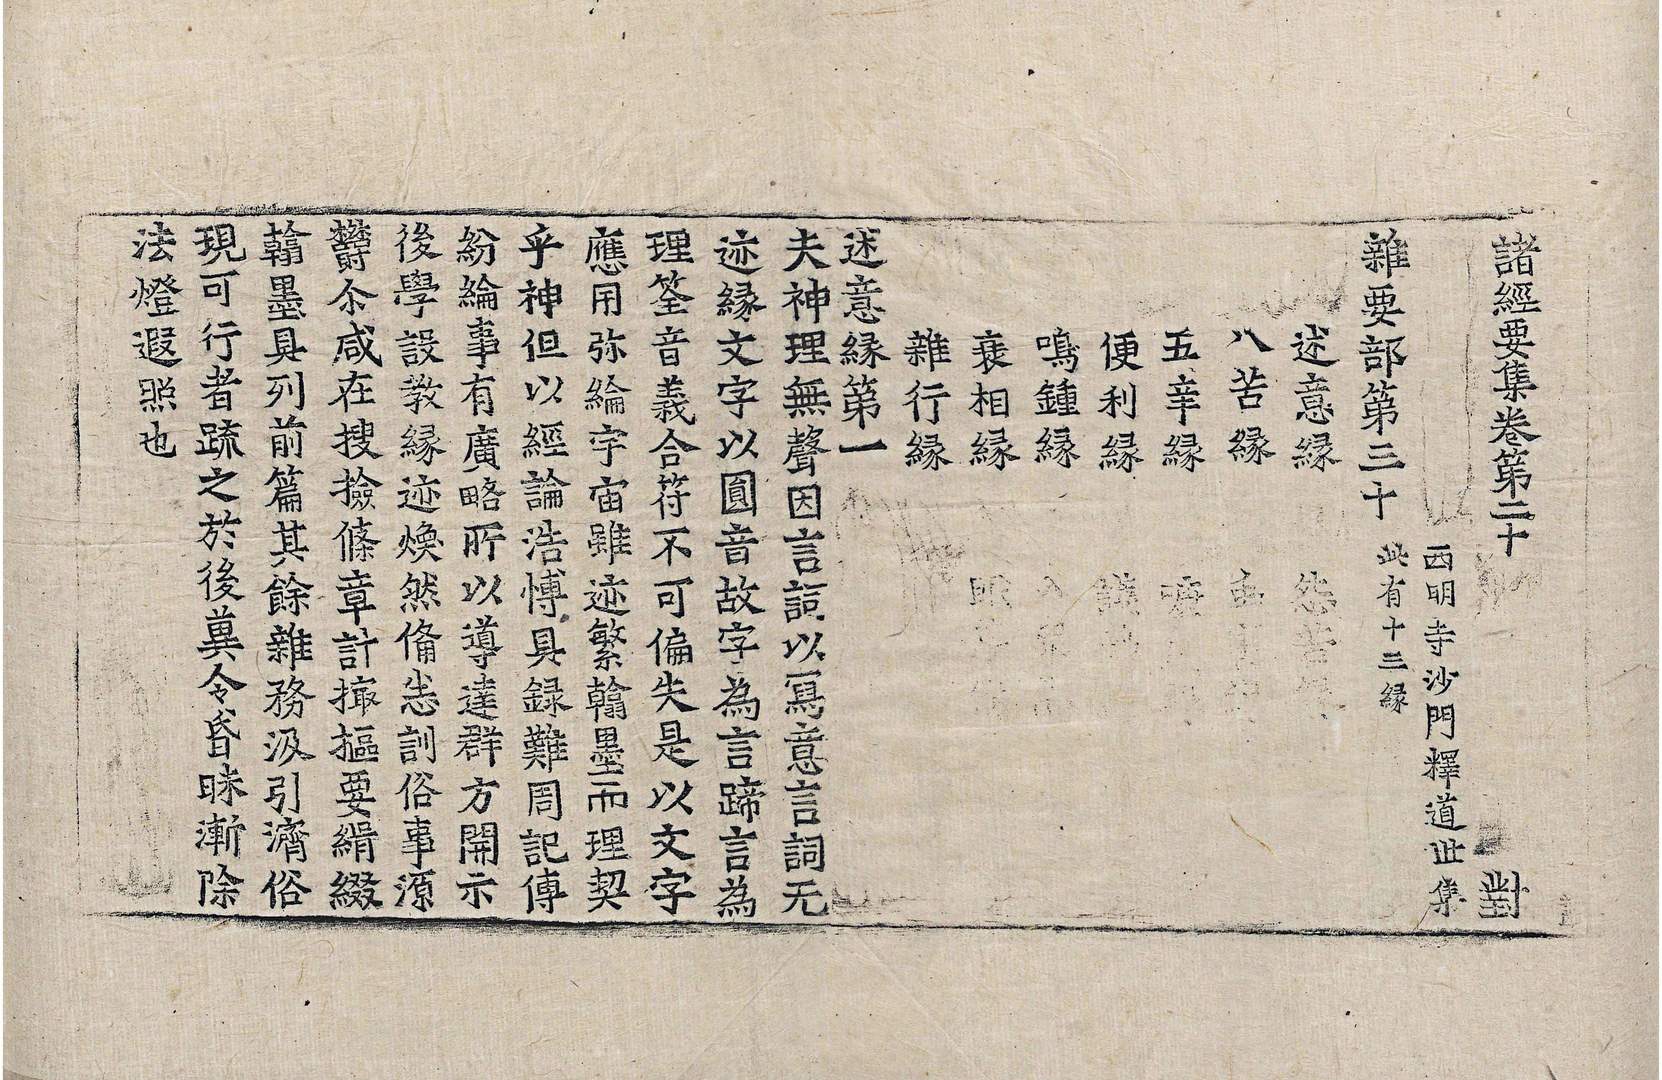 諸經要集卷第二十 對
西明寺沙門釋道世集
雜要部第三十 此有十三緣
述意緣
八苦緣
五辛緣
便利緣
鳴鍾緣
衰相緣
雜行緣
述意緣第一
夫神理無聲因言詞以寫意言詞无
迹緣文字以圓音故字為言蹄言為
理筌音義合符不可偏失是以文字
應用弥綸宇宙雖迹繁翰墨而理契
乎神但以經論浩博具録難周記傳
紛綸事有廣略所以導達群方開示
後學設教緣迹煥然俻悉訓俗事源
欝尒咸在搜撿條章討撮摳要緝綴
翰墨具列前篇其餘雜務汲引濟俗
現可行者疏之於後冀令昏昧漸除
法燈遐照也